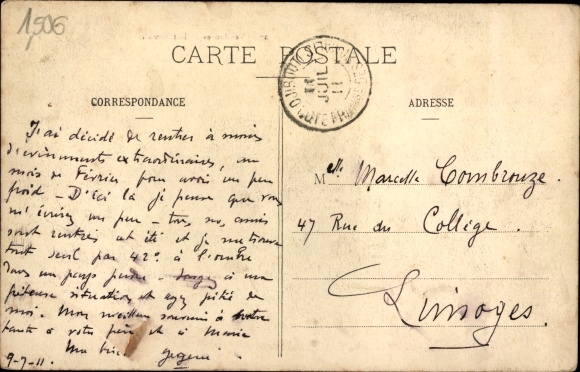 1506
CARTE POSTALE
CORRESPONDANCE
ADRESSE
J'ai décidé de rentrer à moins
d'évènements extraordinaires, au
mois de Février pour avoir un peu
froid - D'ici là je pense que vous
m'écrirez un peu - tous nos amis
sont rentrés cet été et je me trouve
tout seul par 42° à l'ombre
dans un pays - Songez à ma
situation et ayez pitié de
moi. Mon meilleur souvenir à votre
tante à votre père et à Marie
9-7-11.
JUIL
11
Melle Marcelle Combrouze.
47 Rue du Collège.
Limoges.